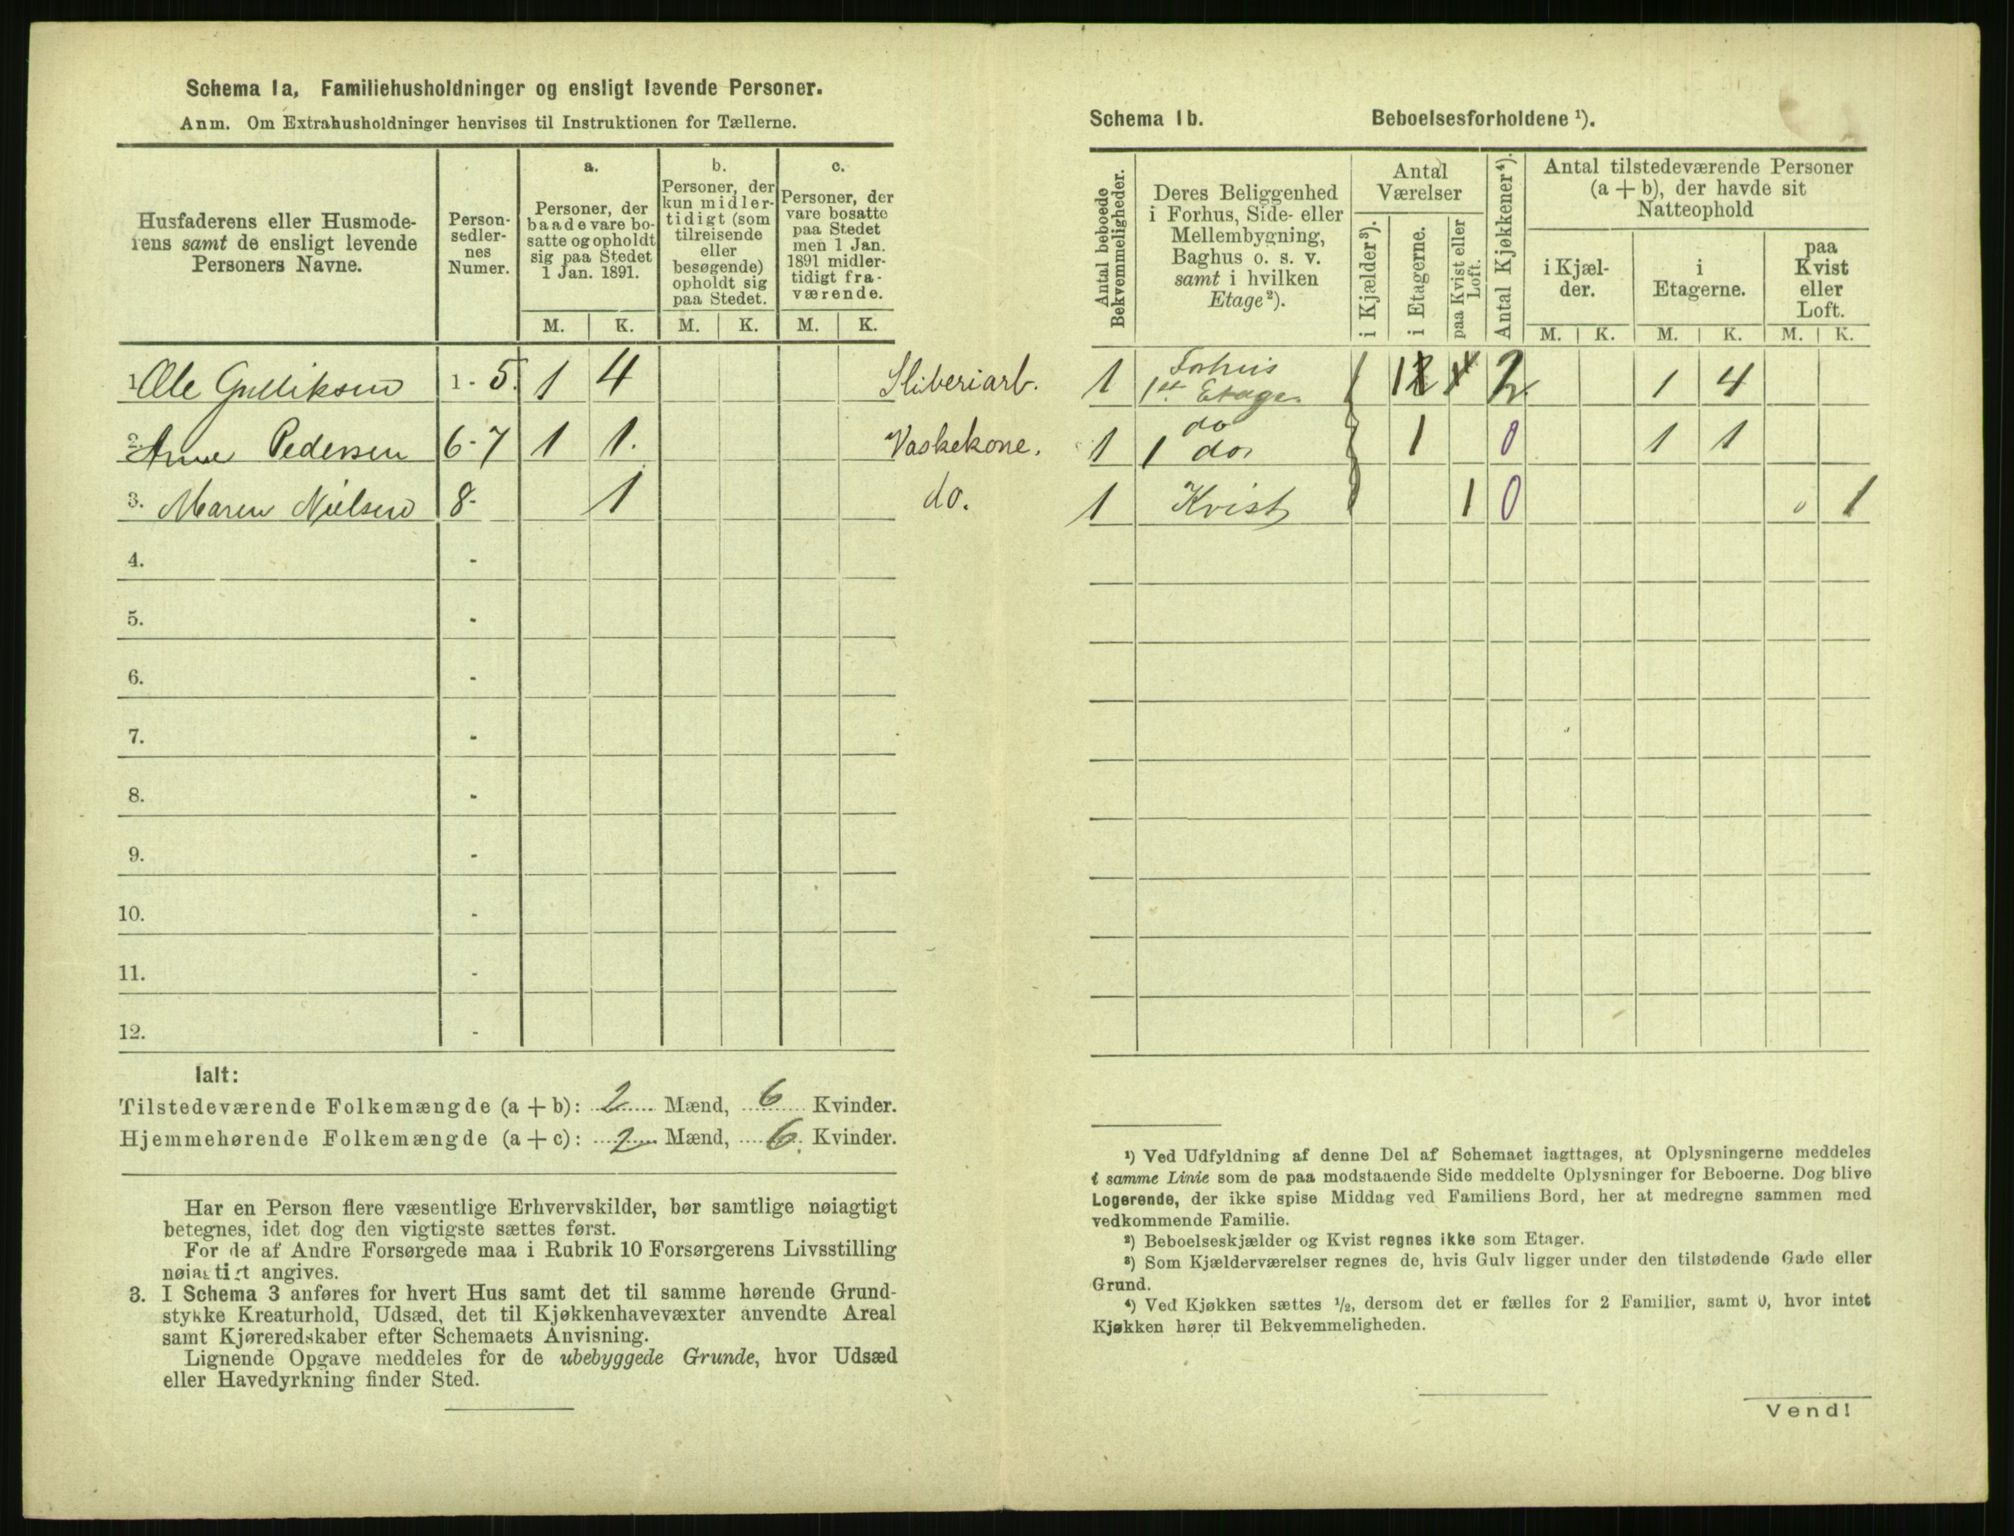 Schema 1a, Familiehusholdninger og ensligt levende Personer.
Anm. Om Extrahusholdninger henvises til Instruktionen for Tællerne.
Husfaderens eller Husmode-
rens samt de ensligt levende
Personers Navne.
Person-
sedler-
nes
Numer.
a.
Personer, der
baade vare bo-
satte og opholdt
sig paa Stedet
1 Jan. 1891.
b.
Personer, der
kun midler-
tidigt (som
tilreisende
eller
besøgende)
opholdt sig
paa Stedet.
c.
Personer, der
vare bosatte
paa Stedet
men 1 Jan.
1891 midler-
tidigt fra-
værende.
M. K. M. K. M. K.
1. Ole Gulliksen 1 - 5. 1 4 Sliberiarb.
2. Anne Pedersen 6 - 7 1 1. Vaskekone.
3. Maren Nielsen 8 - 1 do.
4. -
5. -
6. -
7. -
8. -
9. -
10. -
11. -
12. -
Ialt:
Tilstedeværende Folkemængde (a + b): 2 Mænd, 6 Kvinder.
Hjemmehørende Folkemængde (a + c): 2 Mænd, 6. Kvinder.
Har en Person flere væsentlige Erhvervskilder, bør samtlige nøiagtigt
betegnes, idet dog den vigtigste sættes først.
For de af Andre Forsørgede maa i Rubrik 10 Forsørgerens Livsstilling
nøiagtigt angives.
3. I Schema 3 anføres for hvert Hus samt det til samme hørende Grund-
stykke Kreaturhold, Udsæd, det til Kjøkkenhavevæxter anvendte Areal
samt Kjøreredskaber efter Schemaets Anvisning.
Lignende Opgave meddeles for de ubebyggede Grunde, hvor Udsæd
eller Havedyrkning finder Sted.
Schema 1b. Beboelsesforholdene ¹).
Antal beboede
Bekvemmeligheder.
Deres Beliggenhed
i Forhus, Side- eller
Mellembygning,
Baghus o. s. v.
samt i hvilken
Etage²).
Antal
Værelser
i Kjælder³).
i Etagerne.
paa Kvist eller
Loft.
Antal Kjøkkener⁴).
Antal tilstedeværende Personer
(a + b), der havde sit
Natteophold
i Kjæl-
der.
i
Etagerne.
paa
Kvist
eller
Loft.
M. K. M. K. M. K.
1 Forhus
1st. Etage. 2 1 4
1 do
1 do. 1 0 1 1
1 Kvist 1 0 1
¹) Ved Udfyldning af denne Del af Schemaet iagttages, at Oplysningerne meddeles
i samme Linie som de paa modstaaende Side meddelte Oplysninger for Beboerne. Dog blive
Logerende, der ikke spise Middag ved Familiens Bord, her at medregne sammen med
vedkommende Familie.
²) Beboelseskjælder og Kvist regnes ikke som Etager.
³) Som Kjælderværelser regnes de, hvis Gulv ligger under den tilstødende Gade eller
Grund.
⁴) Ved Kjøkken sættes ½, dersom det er fælles for 2 Familier, samt 0, hvor intet
Kjøkken hører til Bekvemmeligheden.
Vend!